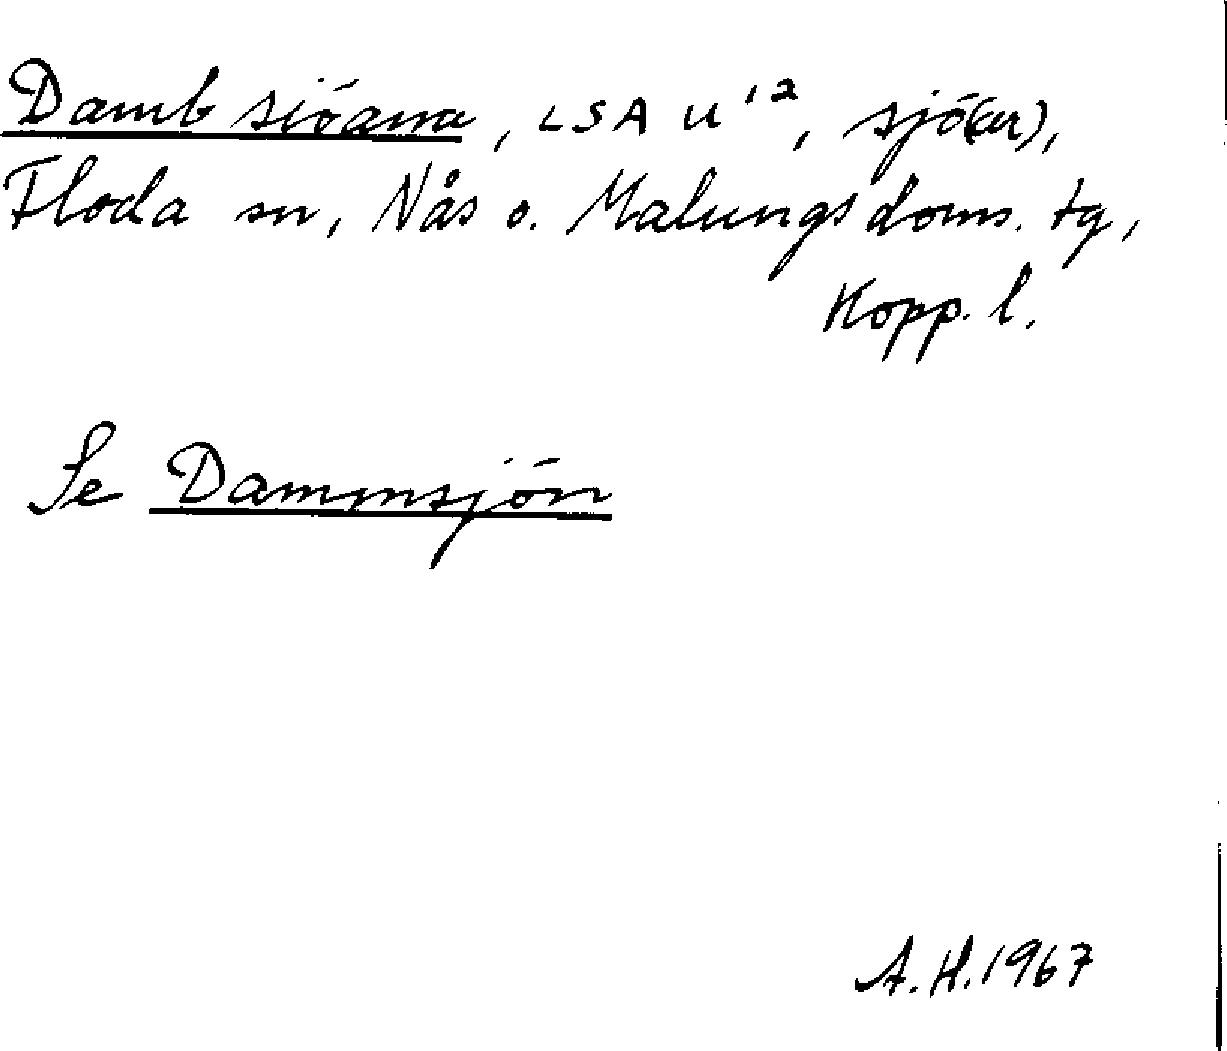 Damb siöana, LSA U¹², sjö(ar),
Floda sn, Nås o. Malungs doms. tg,
Kopp. l.
Se Dammsjön
A.H. 1967